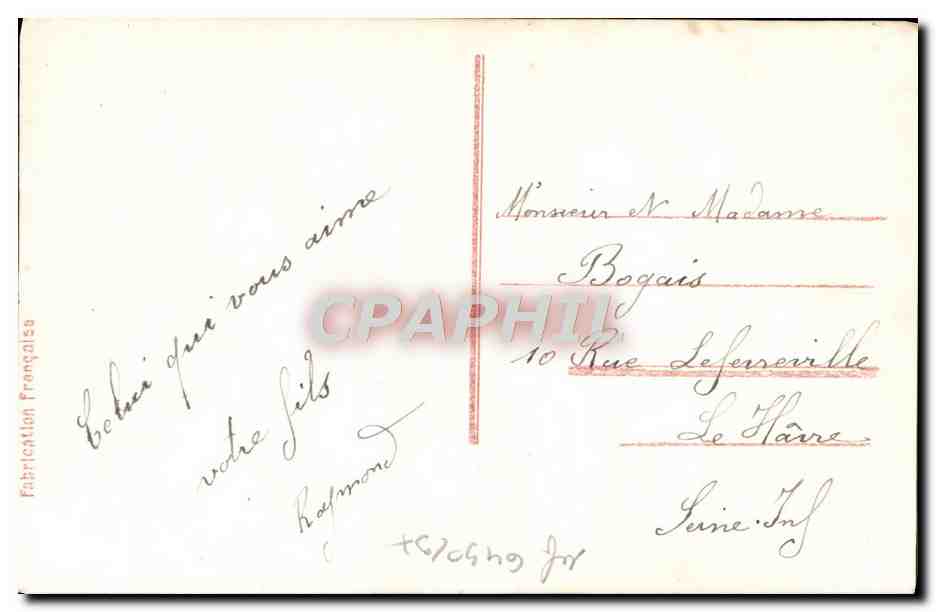 Fabrication Française
Celui qui vous aime
votre fils
Raymond
Monsieur et Madame
Bogais
10 Rue Lefèvreville
Le Hâvre
Seine-Inf
CPAPHIL